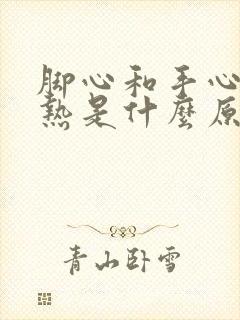 脚心和手心
熱是什麼原
青山卧雪